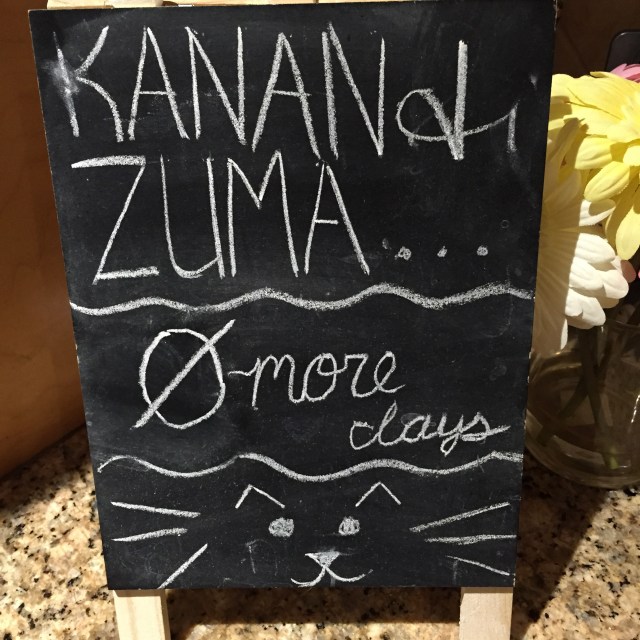 KANAN &
ZUMA....
Ø more
days